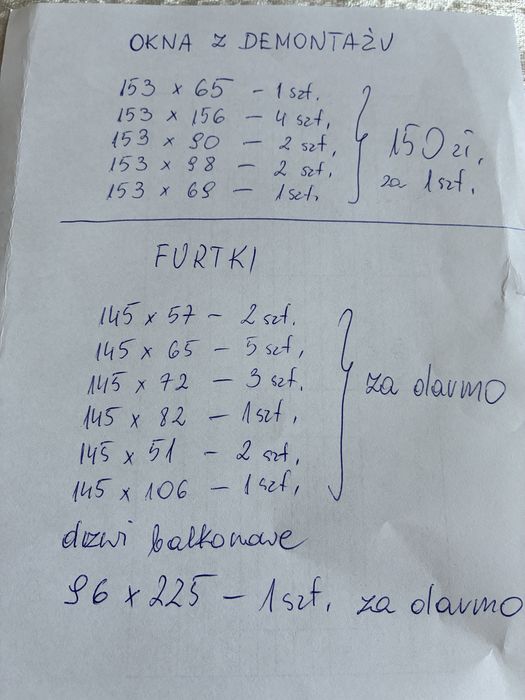 OKNA Z DEMONTAŻU
153 x 65 - 1 szt.
153 x 156 - 4 szt,
153 x 90 - 2 szt,
153 x 98 - 2 szt,
153 x 69 - 1 szt.
150 zł,
za 1 szt.
FURTKI
145 x 57 - 2 szt.
145 x 65 - 5 szt,
145 x 72 - 3 szt.
145 x 82 - 1 szt,
145 x 51 - 2 szt,
145 x 106 - 1 szt,
za darmo
drzwi balkonowe
96 x 225 - 1 szt. za darmo